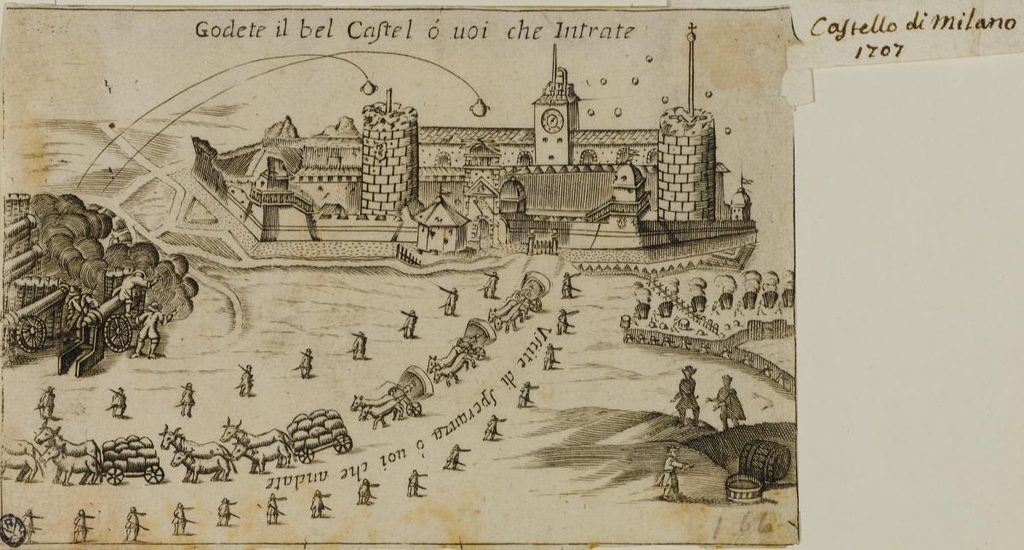 Godete il bel Castel ó uoi che Intrate
Castello di Milano
1707
Uscite di speranza ó uoi che andate
166